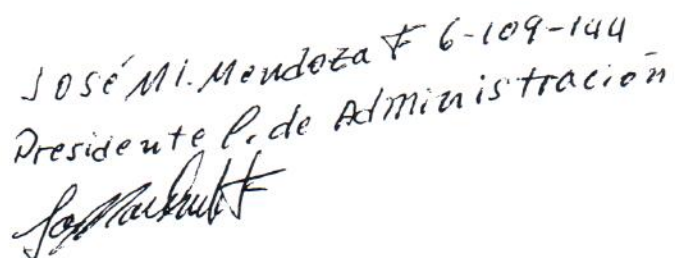 José Ml. Mendoza F 6-109-144
Presidente C. de Administración